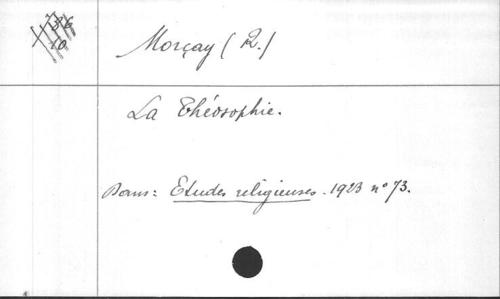 36
10
Morçay (R.)
La Théosophie.
Dans: Etudes religieuses. 1923 nº 73.